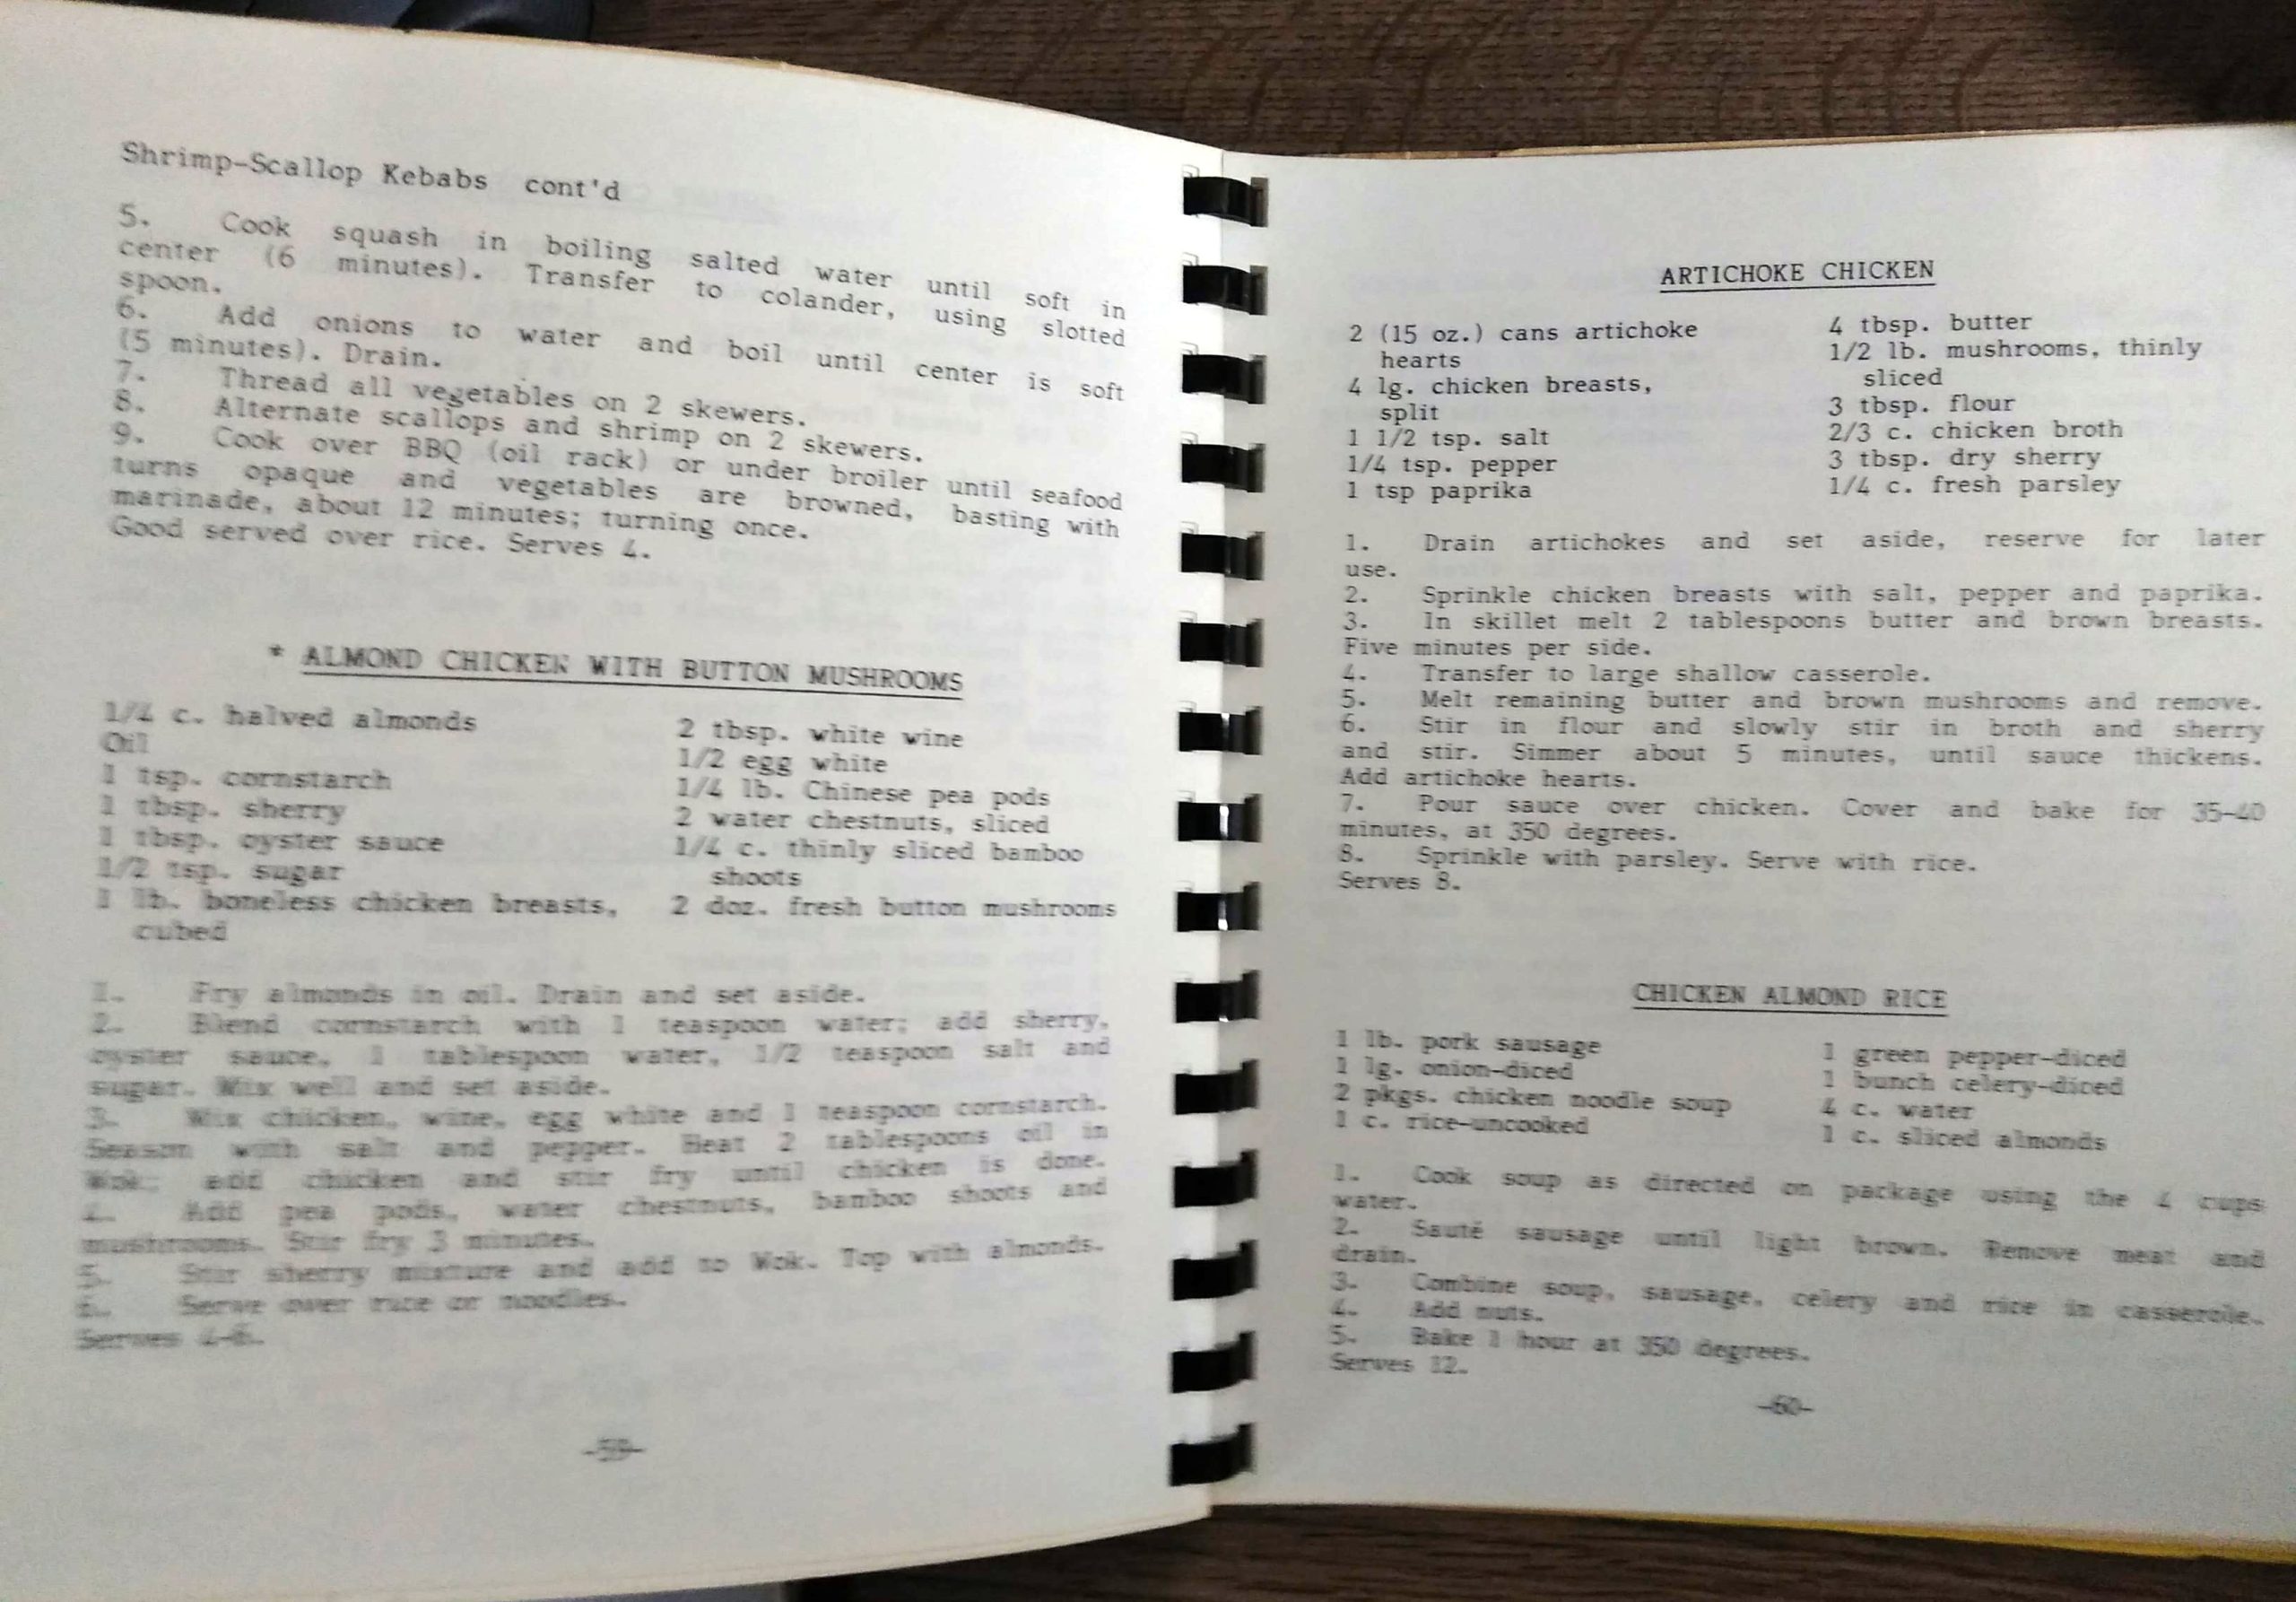 Shrimp-Scallop Kebabs cont'd
5. Cook squash in boiling salted water until soft in
center (6 minutes). Transfer to colander, using slotted
spoon.
6. Add onions to water and boil until center is soft
(5 minutes). Drain.
7. Thread all vegetables on 2 skewers.
8. Alternate scallops and shrimp on 2 skewers.
9. Cook over BBQ (oil rack) or under broiler until seafood
turns opaque and vegetables are browned, basting with
marinade, about 12 minutes; turning once.
Good served over rice. Serves 4.
* ALMOND CHICKEN WITH BUTTON MUSHROOMS
1/4 c. halved almonds
Oil
1 tsp. cornstarch
1 tbsp. sherry
1 tbsp. oyster sauce
1/2 tsp. sugar
1 lb. boneless chicken breasts,
cubed
2 tbsp. white wine
1/2 egg white
1/4 lb. Chinese pea pods
2 water chestnuts, sliced
1/4 c. thinly sliced bamboo
shoots
2 doz. fresh button mushrooms
1. Fry almonds in oil. Drain and set aside.
2. Blend cornstarch with 1 teaspoon water; add sherry,
oyster sauce, 1 tablespoon water, 1/2 teaspoon salt and
sugar. Mix well and set aside.
3. Mix chicken, wine, egg white and 1 teaspoon cornstarch.
Season with salt and pepper. Heat 2 tablespoons oil in
Wok; add chicken and stir fry until chicken is done.
4. Add pea pods, water chestnuts, bamboo shoots and
mushrooms. Stir fry 3 minutes.
5. Stir sherry mixture and add to Wok. Top with almonds.
6. Serve over rice or noodles.
Serves 4-6.
-59-
ARTICHOKE CHICKEN
2 (15 oz.) cans artichoke
hearts
4 lg. chicken breasts,
split
1 1/2 tsp. salt
1/4 tsp. pepper
1 tsp paprika
4 tbsp. butter
1/2 lb. mushrooms, thinly
sliced
3 tbsp. flour
2/3 c. chicken broth
3 tbsp. dry sherry
1/4 c. fresh parsley
1. Drain artichokes and set aside, reserve for later
use.
2. Sprinkle chicken breasts with salt, pepper and paprika.
3. In skillet melt 2 tablespoons butter and brown breasts.
Five minutes per side.
4. Transfer to large shallow casserole.
5. Melt remaining butter and brown mushrooms and remove.
6. Stir in flour and slowly stir in broth and sherry
and stir. Simmer about 5 minutes, until sauce thickens.
Add artichoke hearts.
7. Pour sauce over chicken. Cover and bake for 35-40
minutes, at 350 degrees.
8. Sprinkle with parsley. Serve with rice.
Serves 8.
CHICKEN ALMOND RICE
1 lb. pork sausage
1 lg. onion-diced
2 pkgs. chicken noodle soup
1 c. rice-uncooked
1 green pepper-diced
1 bunch celery-diced
4 c. water
1 c. sliced almonds
1. Cook soup as directed on package using the 4 cups
water.
2. Sauté sausage until light brown. Remove meat and
drain.
3. Combine soup, sausage, celery and rice in casserole.
4. Add nuts.
5. Bake 1 hour at 350 degrees.
Serves 12.
-60-